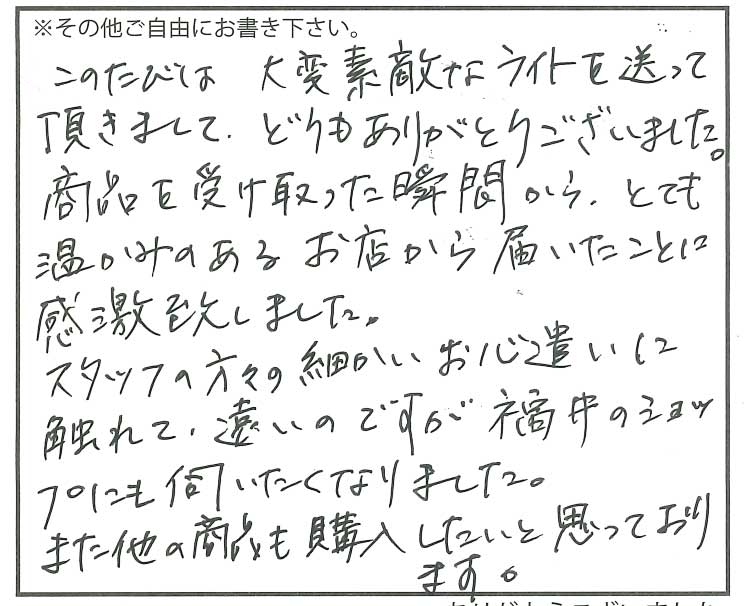 ※その他ご自由にお書き下さい。
このたびは 大変素敵なライトを送って
頂きまして、どうもありがとうございました。
商品を受け取った瞬間から、とても
温かみのある お店から届いたことに
感激致しました。
スタッフの方々の細かい お心遣いに
触れて、遠いのですが 福井のショッ
プにも伺いたくなりました。
また他の商品も購入したいと思っており
ます。